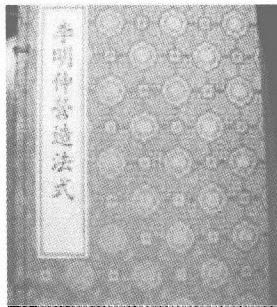 李明仲營造法式